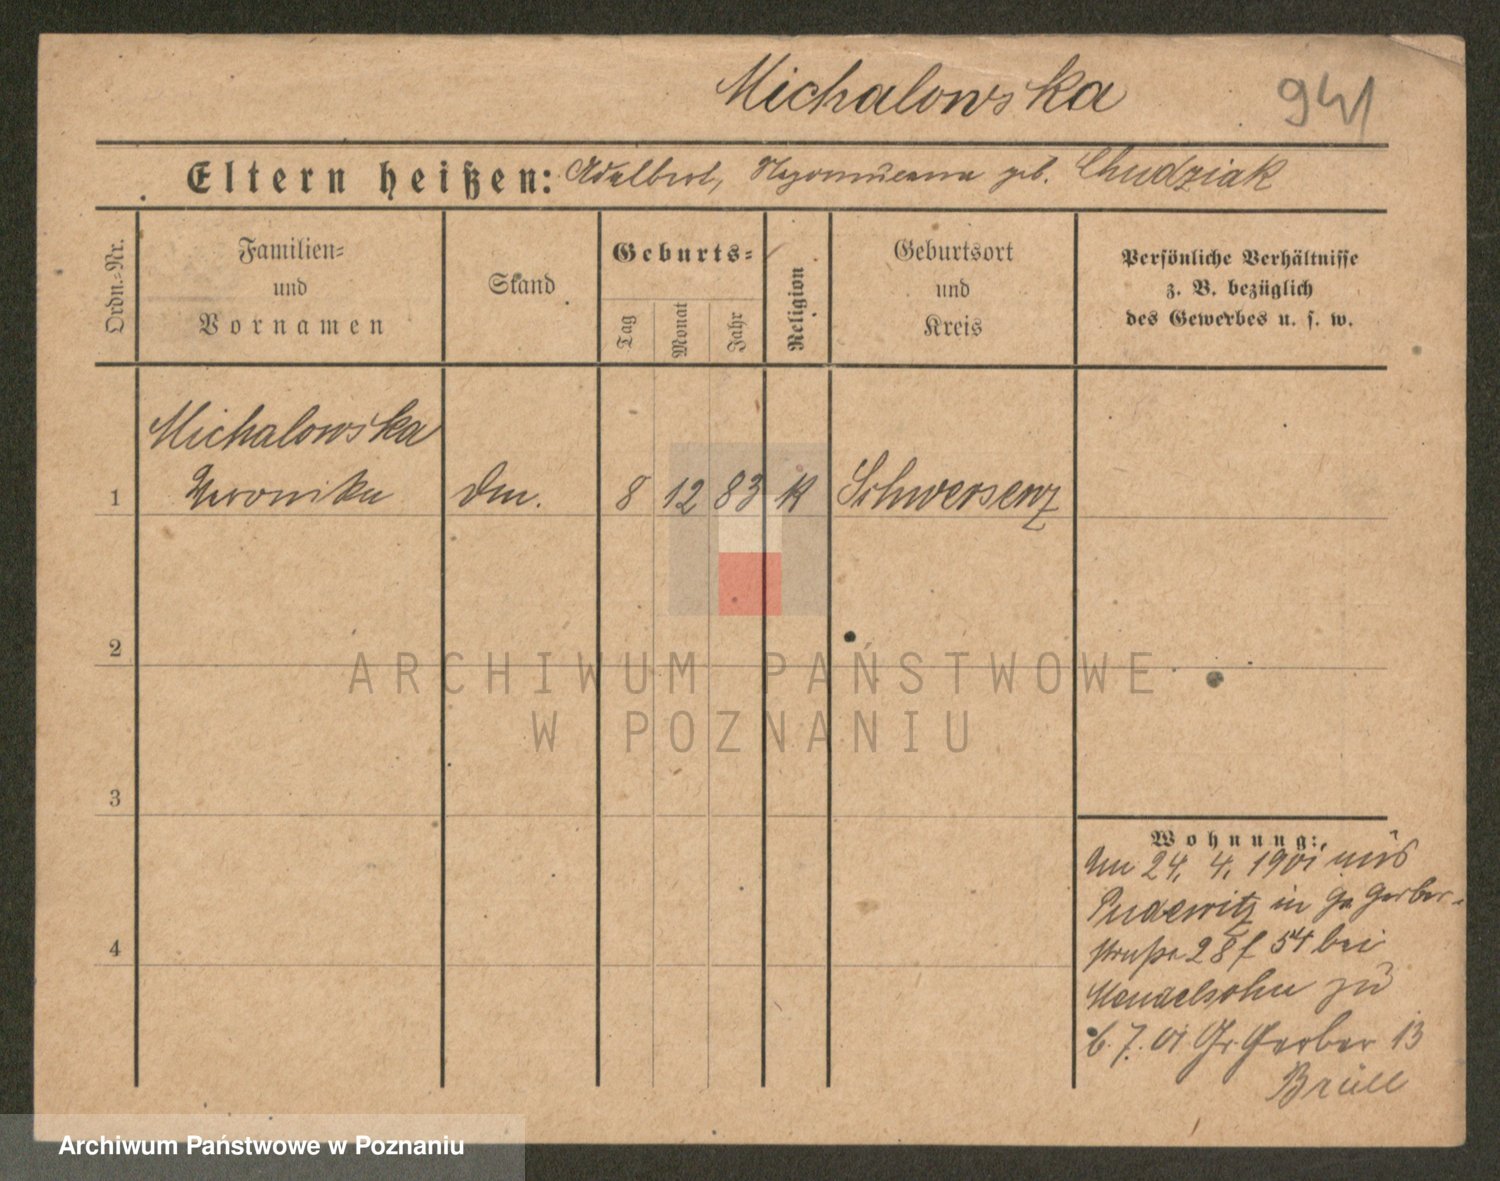 Michalowska 941
Eltern heißen: Adalbert, geb. Chudziak
Ordn.-Nr.
Familien-
und
Vornamen
Stand
Geburts-
Tag
Monat
Jahr
Religion
Geburtsort
und
Kreis
Persönliche Verhältnisse
z. B. bezüglich
des Gewerbes u. s. w.
Michalowska
1 Veronika Dm. 8 12 83 K Schwersenz
2
3
4
Wohnung:
24. 4. 1901 aus
Pudewitz in Gr Gerber-
straße 28 54 bei
Mendelsohn zu
6. 7. 01 Gr. Gerber 13
Brüll
ARCHIWUM PAŃSTWOWE
W POZNANIU
Archiwum Państwowe w Poznaniu